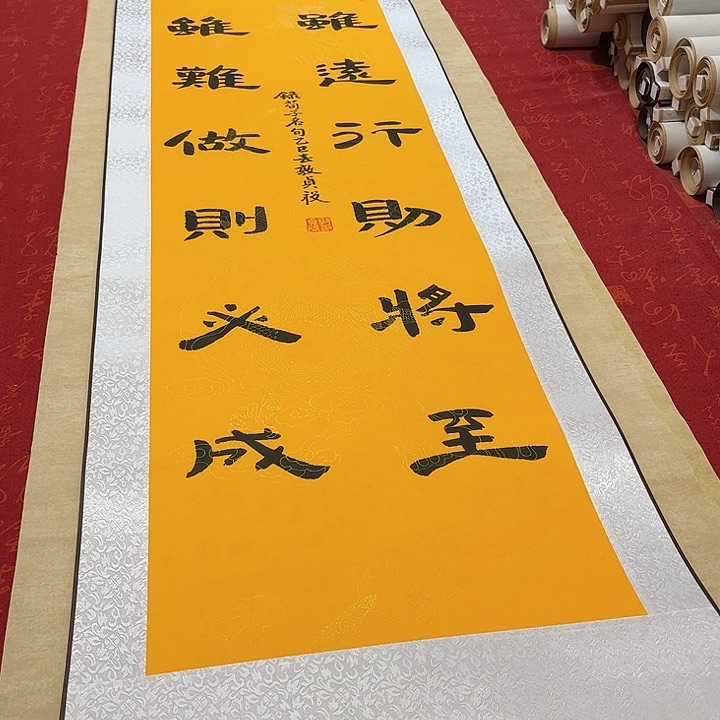 雖遠行則將至
錄荀子名句乙巳春敬貞
雖難做則必成